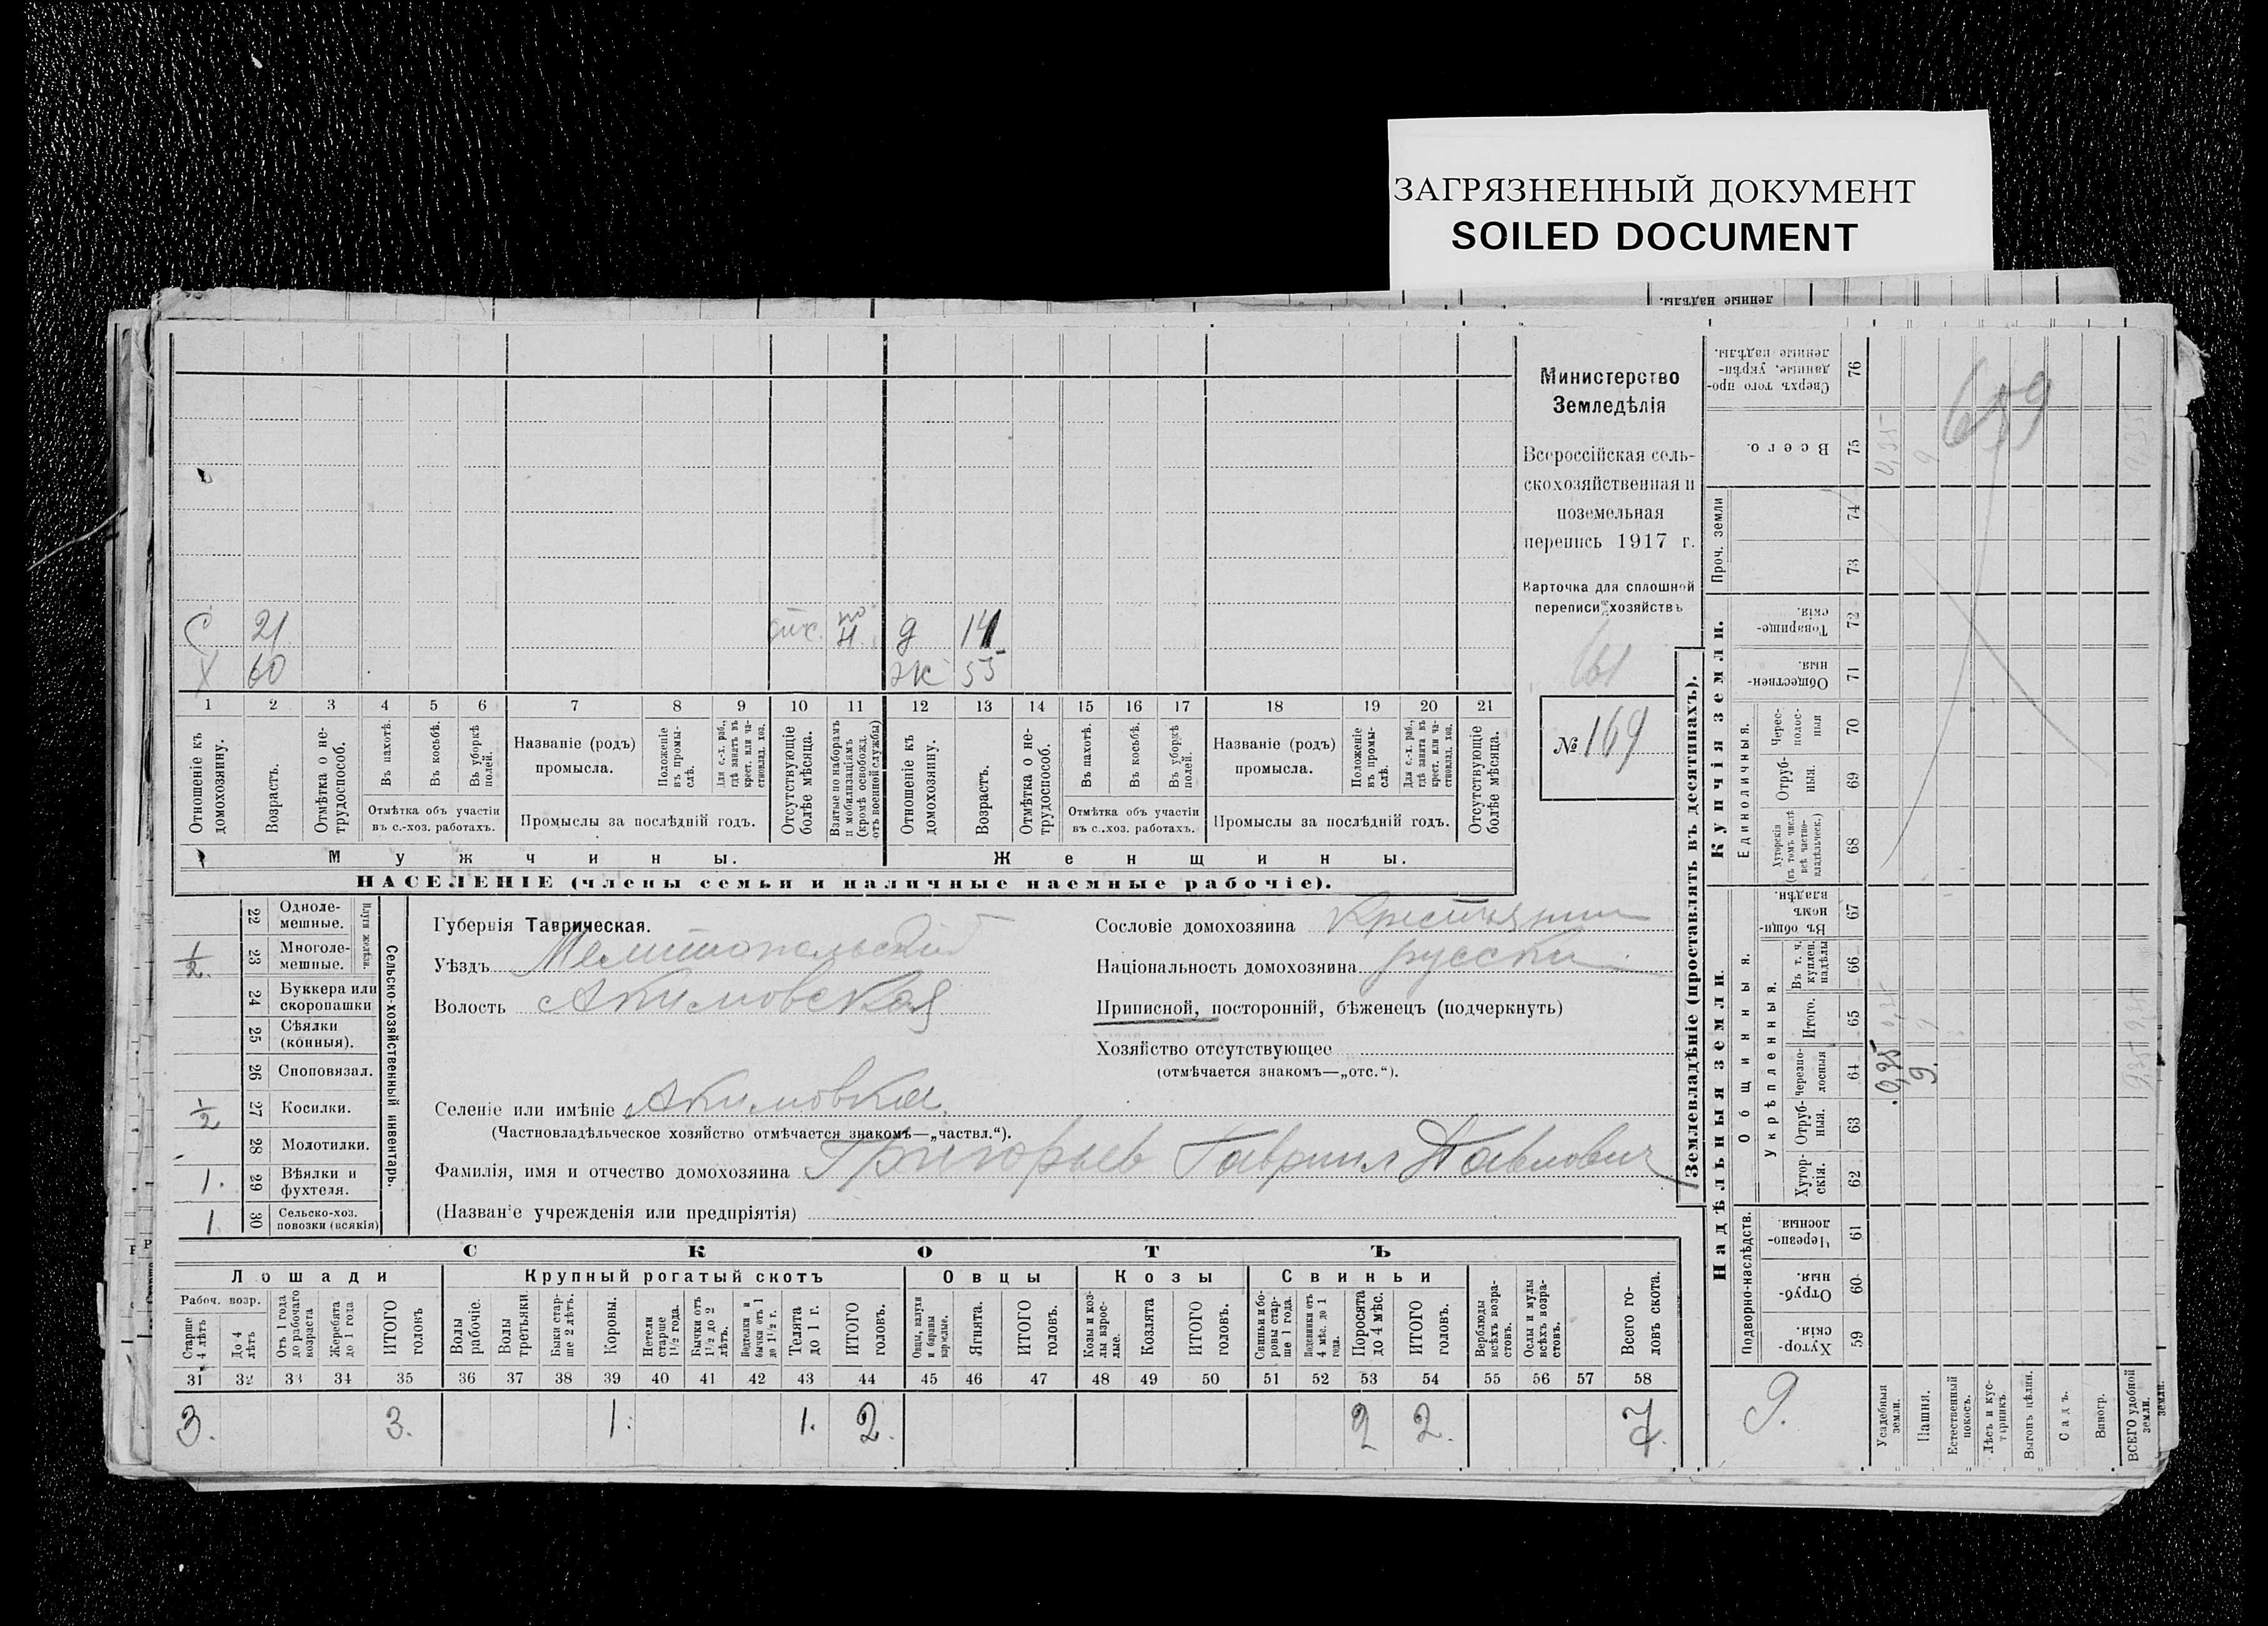 ЗАГРЯЗНЕННЫЙ ДОКУМЕНТ
SOILED DOCUMENT
ленные надѣлы.
Министерство
Земледѣлія
Всероссійская сель-
скохозяйственная и
поземельная
перепись 1917 г.
Карточка для сплошной
переписи хозяйствъ
161
№ 169
С 21 отс. по н. д 14
Х 60 ж 55
1 2 3 4 5 6 7 8 9 10 11 12 13 14 15 16 17 18 19 20 21
Отношеніе къ домохозяину.
Возрастъ.
Отмѣтка о не-трудоспособ.
Въ пахотѣ.
Въ косьбѣ.
Въ уборкѣ полей.
Отмѣтка объ участіи
въ с.-хоз. работахъ.
Названіе (родъ)
промысла.
Положеніе въ промы-слѣ.
Для с.-х. раб., гдѣ занятъ въ крест. или ча-стновлад. хоз.
Промыслы за послѣдній годъ.
Отсутствующіе болѣе мѣсяца.
Взятые по наборамъ и мобилизаціямъ (кромѣ освобожд. отъ военной службы)
Отношеніе къ домохозяину.
Возрастъ.
Отмѣтка о не-трудоспособ.
Въ пахотѣ.
Въ косьбѣ.
Въ уборкѣ полей.
Отмѣтка объ участіи
въ с.-хоз. работахъ.
Названіе (родъ)
промысла.
Положеніе въ промы-слѣ.
Для с.-х. раб., гдѣ занята въ крест. или ча-стновлад. хоз.
Промыслы за послѣдній годъ.
Отсутствующіе болѣе мѣсяца.
Мужчины. Женщины.
НАСЕЛЕНІЕ (члены семьи и наличные наемные рабочіе).
22 Одноле-мешные.
1/2. 23 Многоле-мешные.
Плуги желѣзн.
24 Буккера или скоропашки
25 Сѣялки (конныя).
26 Сноповязал.
1/2 27 Косилки.
28 Молотилки.
1. 29 Вѣялки и фухтеля.
1 30 Сельско-хоз. повозки (всякія)
Сельско-хозяйственный инвентарь.
Губернія Таврическая.
Уѣздъ Мелитопольскій
Волость Акимовская
Селеніе или имѣніе Акимовка.
(Частновладѣльческое хозяйство отмѣчается знакомъ—„частвл.“).
Фамилія, имя и отчество домохозяина Григорьев Гавриил Павлович
(Названіе учрежденія или предпріятія)
Сословіе домохозяина Крестьянин
Національность домохозяина русский
Приписной, посторонній, бѣженецъ (подчеркнуть)
Хозяйство отсутствующее
(отмѣчается знакомъ—„отс.“).
СКОТЪ
Лошади Крупный рогатый скотъ Овцы Козы Свиньи
Рабоч. возр.
Старше 4 лѣтъ
До 4 лѣтъ
Отъ 1 года до рабочаго возраста
Жеребята до 1 года
ИТОГО головъ
Волы рабочіе.
Волы третьяки.
Быки стар-ше 2 лѣтъ.
Коровы.
Нетели старше 1 1/2 года.
Бычки отъ 1 1/2 до 2 лѣтъ.
Подтелки и бычки отъ 1 до 1 1/2 г.
Телята до 1 г.
ИТОГО головъ.
Овцы, валухи и бараны взрослые.
Ягнята.
ИТОГО головъ.
Козы и коз-лы взрос-лые.
Козлята
ИТОГО головъ.
Свиньи и бо-ровы стар-ше 1 года.
Подсвинки отъ 4 мѣс. до 1 года.
Поросята до 4 мѣс.
ИТОГО головъ.
Верблюды всѣхъ возра-стовъ.
Ослы и мулы всѣхъ возра-стовъ.
Всего го-ловъ скота.
31 32 33 34 35 36 37 38 39 40 41 42 43 44 45 46 47 48 49 50 51 52 53 54 55 56 57 58
3. 3. 1. 1. 2. 2 2. 7.
Землевладѣніе (проставлять въ десятинахъ).
Купчія земли.
Надѣльныя земли.
Сверхъ того про-данные, укрѣп-ленные надѣлы. 76
Всего. 75
Проч. земли
74
73
Товарище-скія. 72
Обществен-ныя. 71
Единоличныя.
Черес-полос-ныя 70
Отруб-ныя. 69
Хуторскія (въ томъ числѣ всѣ частно-владѣльческ.) 68
Общинныя.
Въ общин-номъ владѣн. 67
Укрѣпленныя.
Въ т. ч. куплен. надѣлы 66
Итого. 65
Черезпо-лосныя 64
Отруб-ныя. 63
Хутор-скія. 62
Подворно-наслѣдств.
Черезпо-лосныя. 61
Отруб-ныя. 60
Хутор-скія. 59
659
0,35
9.
9.
Усадебныя земли.
Пашня.
Естественный покосъ.
Лѣсъ и кус-тарникъ.
Выгонъ цѣлин.
Садъ.
Виногр.
ВСЕГО удобной земли.